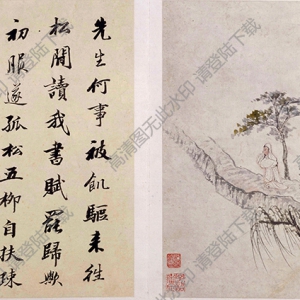 先生何事被飢驅来往
松間讀我書賦罷歸與
初服遂孤松五柳自扶疎
高清图无此水印 请登陆下载